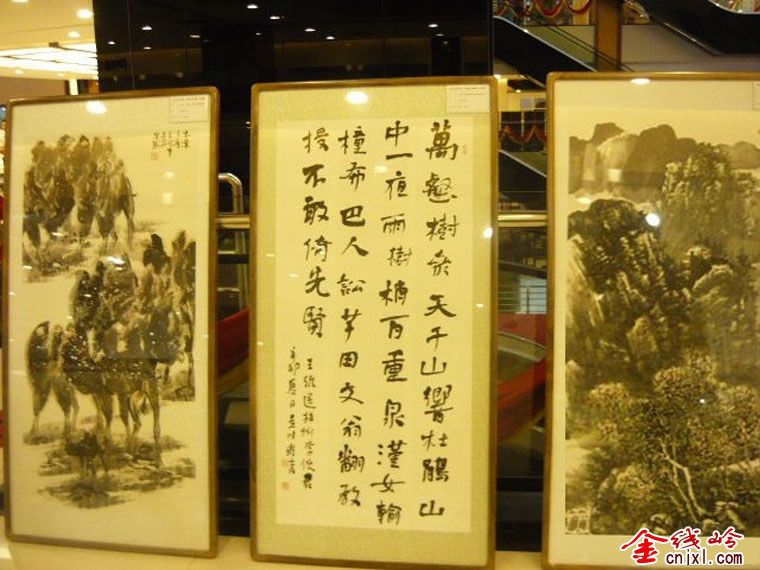 萬壑樹參天千山響杜鵑山
中一夜雨樹梢百重泉漢女輸
橦布巴人訟芋田文翁翻教
授不敢倚先賢
王維送梓州李使君
辛卯夏日
金线岭
cnjxl.com